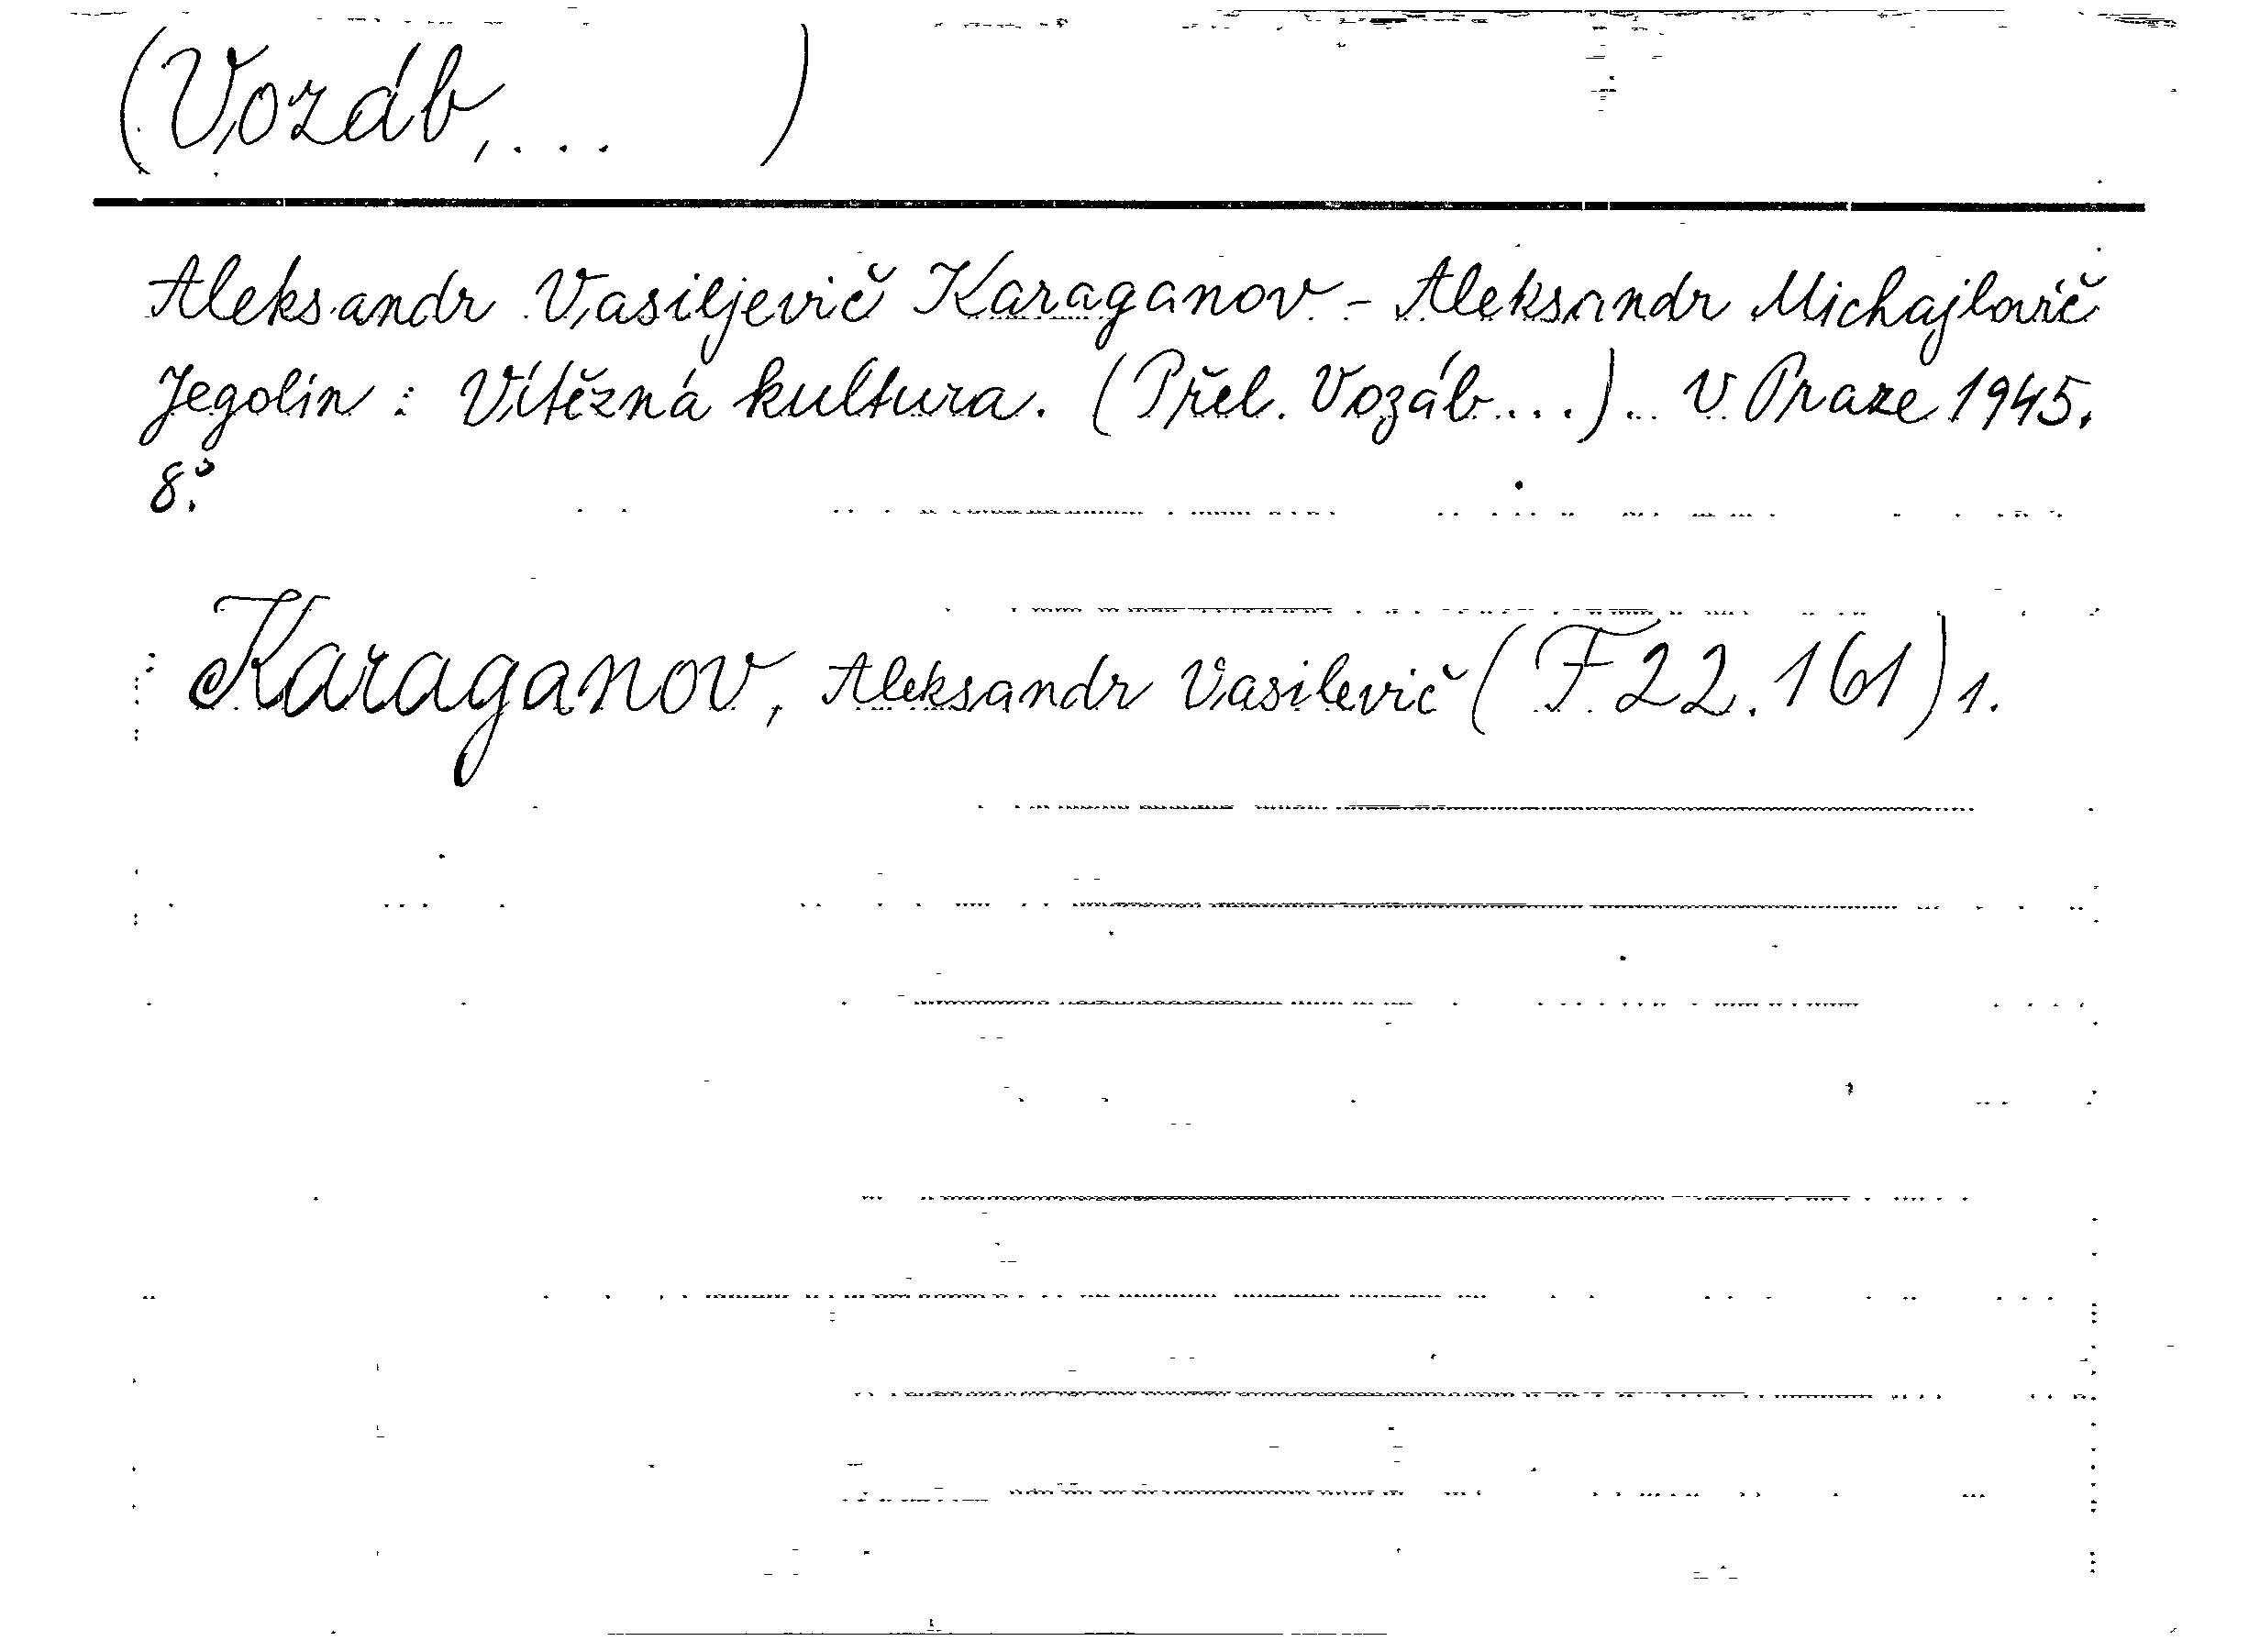 (Vozáb,... )
Aleksandr Vasiljevič Karaganov - Aleksandr Michajlovič
Jegolin : Vítězná kultura. (Přel. Vozáb...). V Praze 1945.
8°.
Karaganov, Aleksandr Vasilevič (F 22.161) 1.